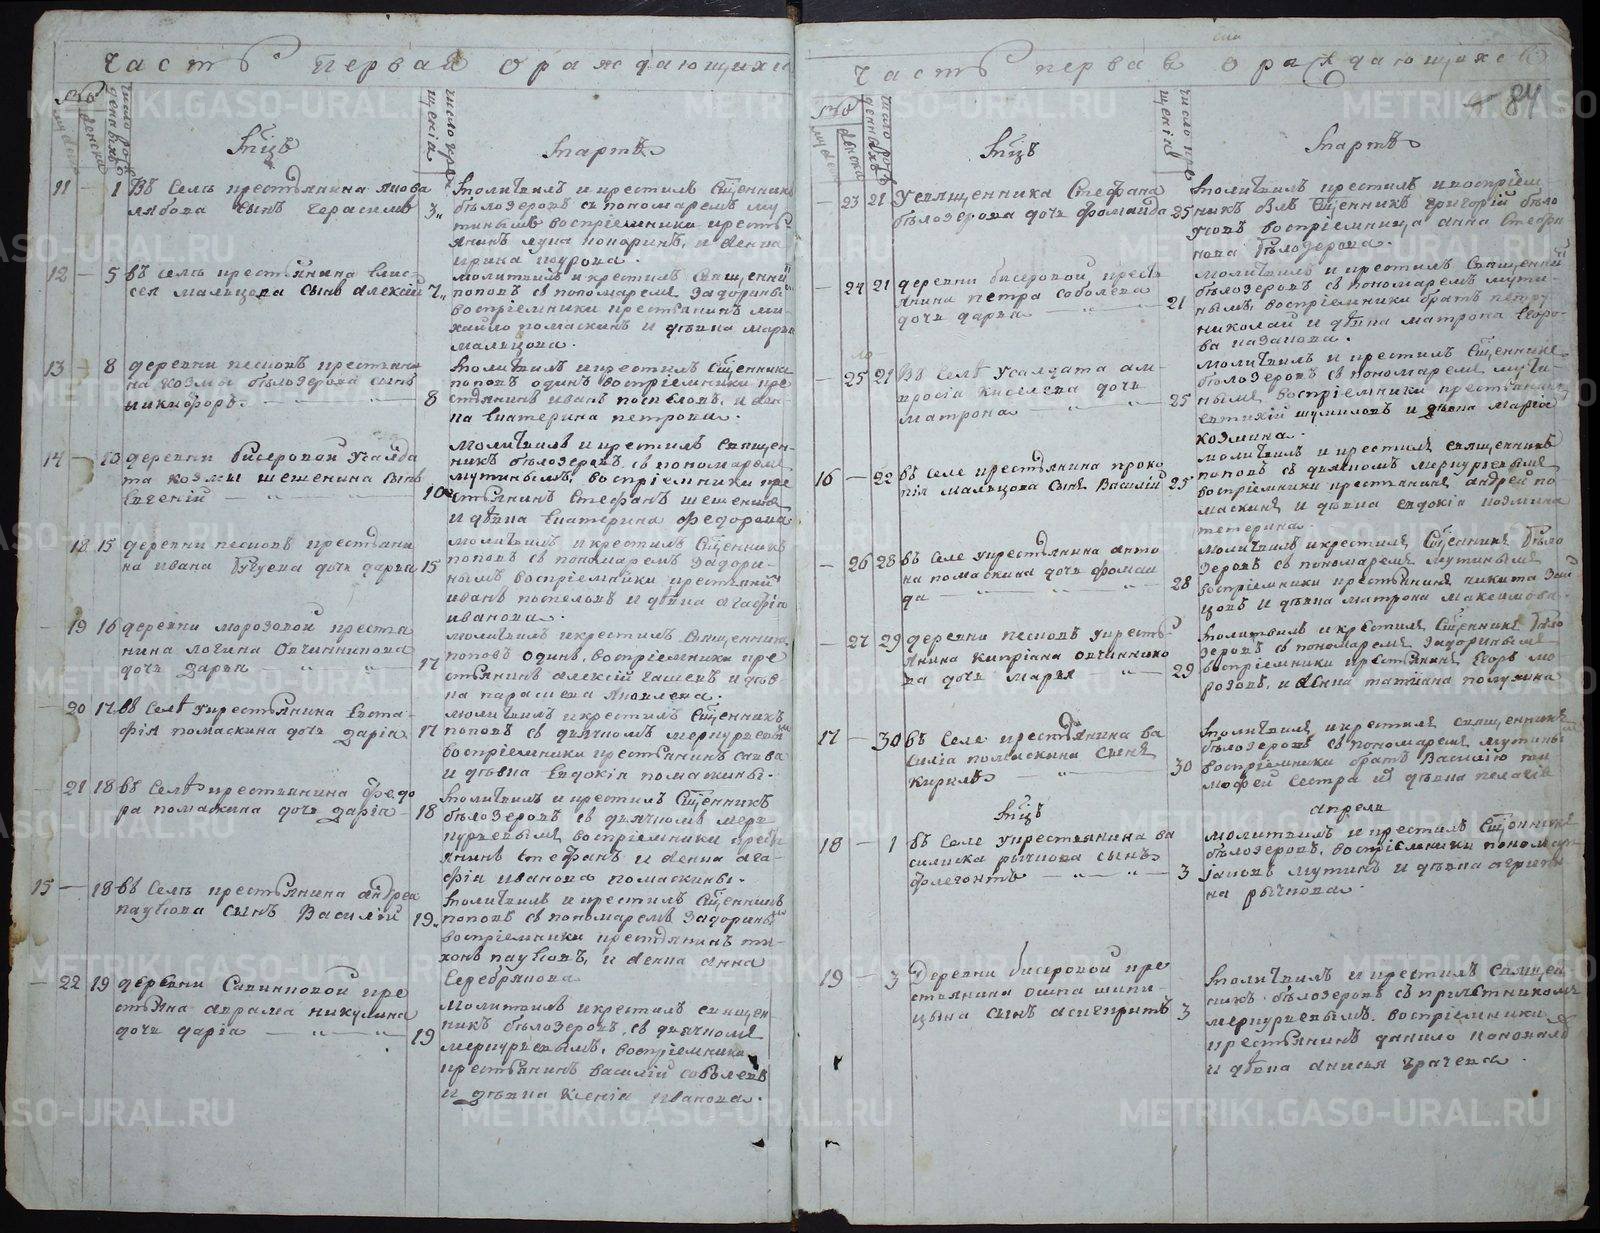 Часть первая о раждающихся
мужеска
женска
число рож
денныхъ
Мцъ
число кре
щенія
Мартъ
11 — 1 Въ Селѣ крестьянина Якова
лябова сынъ Герасимъ 3
Молитвилъ и крестилъ Священникъ
бѣлозеровъ съ пономаремъ му
тинымъ воспріемники кресть
янинъ лука кокоринъ, и женка
12 — 5 въ селѣ крестьянина Елис
сея мальцова сынъ алексѣй 7
молитвилъ и крестилъ Священникъ
поповъ съ пономаремъ Задоринымъ
воспріемники крестьянинъ ми
хайло помаскинъ и дѣвка марья
мальцова.
13 — 8 деревни песковъ крестьяни
на козмы бѣлозерова сынъ
никифоръ — 8
Молитвилъ и крестилъ Священникъ
поповъ одинъ воспріемники кре
стьянинъ иванъ поспѣловъ, и жен
ка Екатерина петрова.
14 — 13 деревни бисеровой Усалда
та козмы шешенина сынъ
Евгеній — 10
Молитвилъ и крестилъ священ
никъ бѣлозеровъ, съ пономаремъ
мутинымъ, воспріемники кре
стьянинъ Стефанъ шешенинъ
и дѣвка Екатерина Федорова
18 15 деревни песковъ крестьяни
на ивана дочь дарья 15
молитвилъ и крестилъ Священникъ
поповъ съ пономаремъ Задори
нымъ воспріемники крестьянинъ
иванъ поспеловъ и дѣвка агафія
иванова.
— 19 16 деревни морозовой крестья
нина логина Овчинникова
дочь дарья — 17
молитвилъ и крестилъ Священникъ
поповъ одинъ, воспріемники кре
стьянинъ алексѣй и дѣв
ка парасковья Яковлева.
— 20 17 въ Селѣ укрестьянина Евста
фія помаскина дочь дарія 17
молитвилъ и крестилъ Священникъ
поповъ съ дьячкомъ меркурьевымъ
воспріемники крестьянинъ савва
и дѣвка Евдокія помаскины.
— 21 18 въ Селѣ крестьянина Федо
ра помаскина дочь дарія 18
Молитвилъ и крестилъ Священникъ
бѣлозеровъ съ дьячкомъ мер
курьевымъ воспріемники кресть
янинъ Стефанъ и женка ага
фія иванова помаскины.
15 — 18 въ Селѣ крестьянина андрея
паукова сынъ Василій 19
Молитвилъ и крестилъ Священникъ
поповъ съ пономаремъ Задоринымъ
воспріемники крестьянинъ ти
хонъ пауковъ, и женка анна
Серебрякова
— 22 19 деревни Савинковой кре
стьяна аврама никулина
дочь дарія — 19
молитвилъ и крестилъ священ
никъ бѣлозеровъ, съ дьячкомъ
меркурьевымъ, воспріемники
крестьянинъ василій соболевъ
и дѣвка ксенія иванова.
Часть первая о раждающихся
84
мужеска
женска
число рож
денныхъ
Мцъ
число кре
щенія
Мартъ
— 23 21 Усвященника Стефана
бѣлозерова дочь фомаида 25
Молитвилъ крестилъ и воспріем
никъ былъ Священникъ григорій бѣло
усовъ воспріемница анна Стефа
нова бѣлозерова.
— 24 21 деревни бисеровой кресть
янина петра соболева
дочь дарья — 21
молитвилъ и крестилъ Священникъ
бѣлозеровъ съ пономаремъ мути
нымъ, воспріемники братъ петру
николай и дѣвка матрона Егоро
ва казакова.
— 25 21 Въ Селѣ Усалдата ам
вросія киселева дочь
матрона — 25
молитвилъ и крестилъ Священникъ
бѣлозеровъ съ пономаремъ мути
нымъ, воспріемники крестьянинъ
евтихій шумиловъ и дѣвка марія
козмина.
16 — 22 въ селе крестьянина проко
пія мальцова сынъ Василій 25
молитвилъ и крестилъ священникъ
поповъ съ дьячкомъ меркурьевымъ
воспріемники крестьянинъ андрей по
маскинъ и дѣвка евдокія козмина
тетерина.
— 26 28 въ селе укрестьянина анто
на помаскина дочь фомаи
да — 28
молитвилъ и крестилъ Священникъ бѣло
зеровъ съ пономаремъ мутинымъ
воспріемники крестьянинъ никита Зай
цовъ и дѣвка матрона максимова.
— 27 29 деревни песковъ укресть
янина киприана овчиннико
ва дочь марья — 29
Молитвилъ и крестилъ Священникъ бѣло
зеровъ съ пономаремъ Задоринымъ
воспріемники крестьянинъ Егоръ мо
розовъ, и женка татиана
17 — 30 въ Селе крестьянина ва
силія помаскина сынъ
кирилъ — 30
Молитвилъ и крестилъ священникъ
бѣлозеровъ съ пономаремъ мутинымъ
воспріемники братъ Василію ти
мофей Сестра и дѣвка пелагія
Мцъ
апрель
18 — 1 въ Селе укрестьянина ва
силиска рычкова сынъ
Флегонтъ — 3
молитвилъ и крестилъ Священникъ
бѣлозеровъ, воспріемники пономарь
іаковъ мутинъ и дѣвка агрипи
на рычкова.
19 — 3 Деревни бисеровой кре
стьянина осипа шипи
цына сынъ 3
Молитвилъ и крестилъ священ
никъ бѣлозеровъ съ причетникомъ
меркурьевымъ. воспріемники
крестьянинъ данило
и дѣвка анисья грачева.